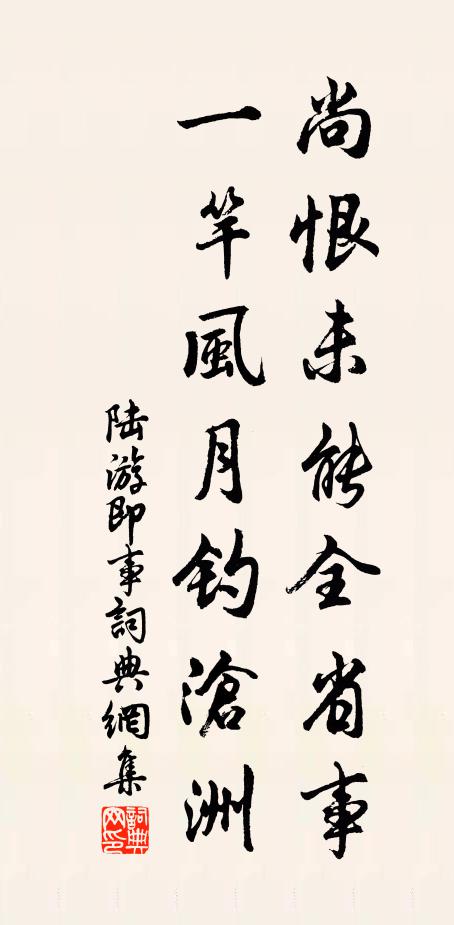 尚恨未能全省事
一竿風月釣滄洲
陸游即事詞典網集
詞典網印